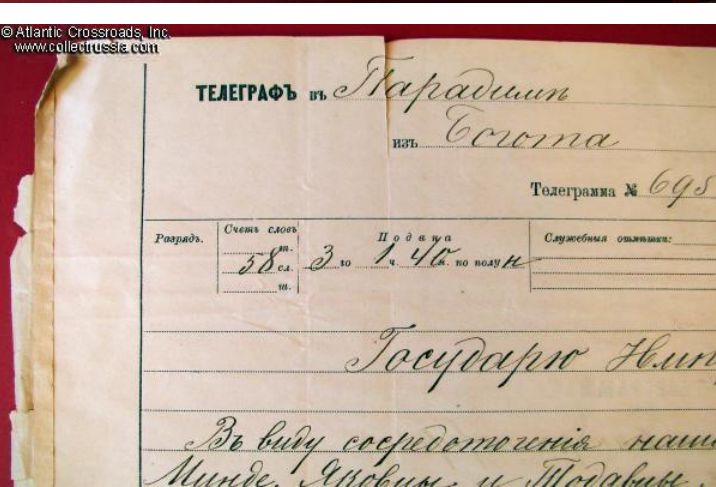 © Atlantic Crossroads, Inc.
www.collectrussia.com
ТЕЛЕГРАФЪ въ Парадимъ
изъ Богота
Телеграмма № 695
Разрядъ.
Счетъ словъ
т.
58 сл.
ш.
Подана
3 го 1 ч. 40 м. по полун
Служебныя отмѣтки:
Государю Имп
Въ виду сосредоточенія наши
Яковцы и Тодавцы